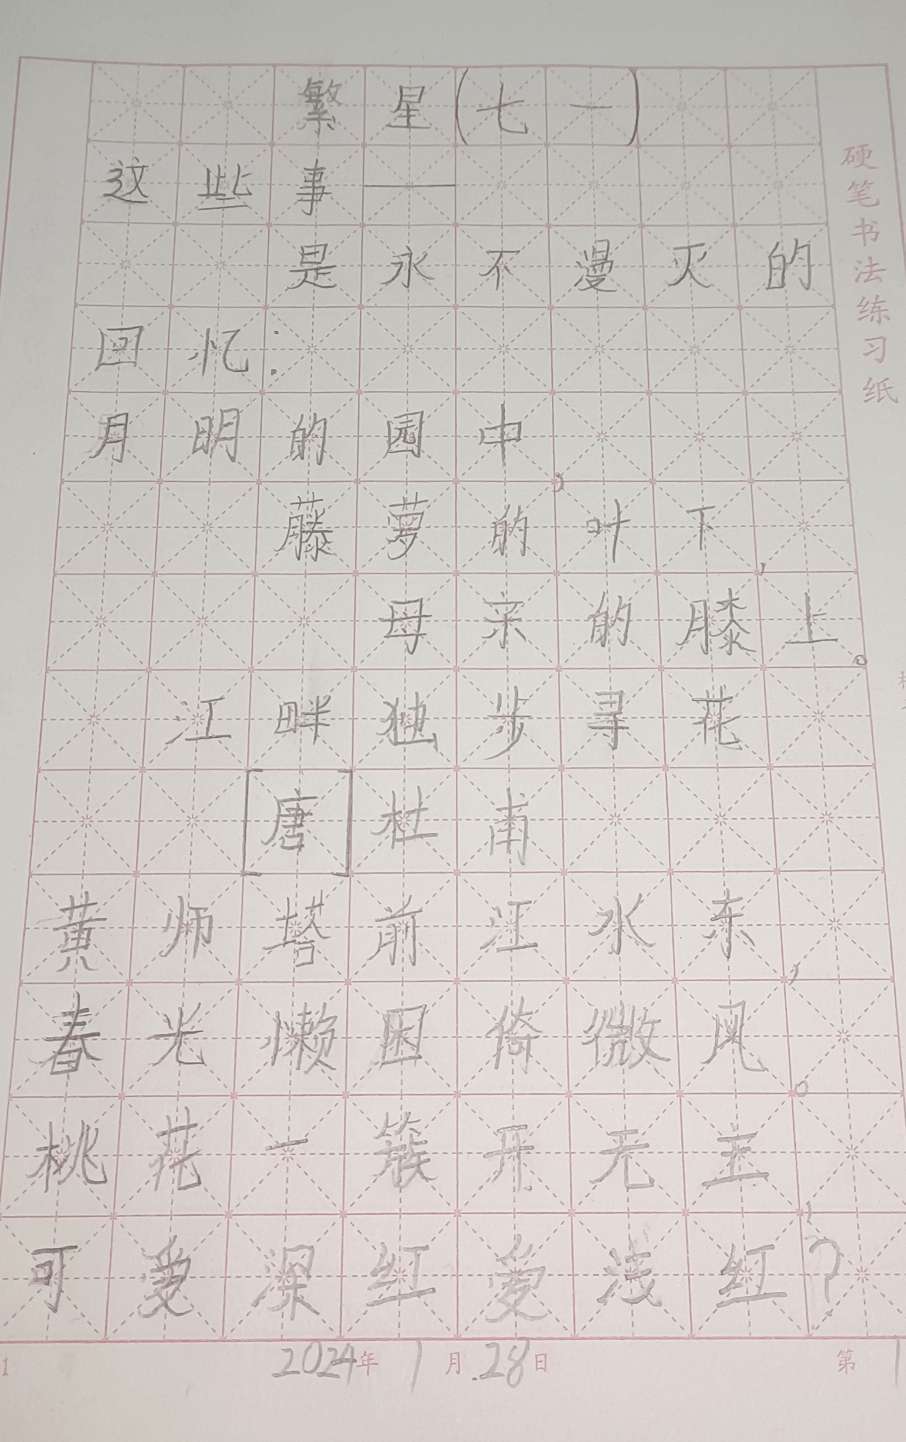 繁星(七一)
这些事——
是永不漫灭的
回忆:
月明的园中,
藤萝的叶下,
母亲的膝上。
江畔独步寻花
[唐]杜甫
黄师塔前江水东,
春光懒困倚微风。
桃花一簇开无主,
可爱深红爱浅红?
2024年1月28日
第1
1
硬笔书法练习纸